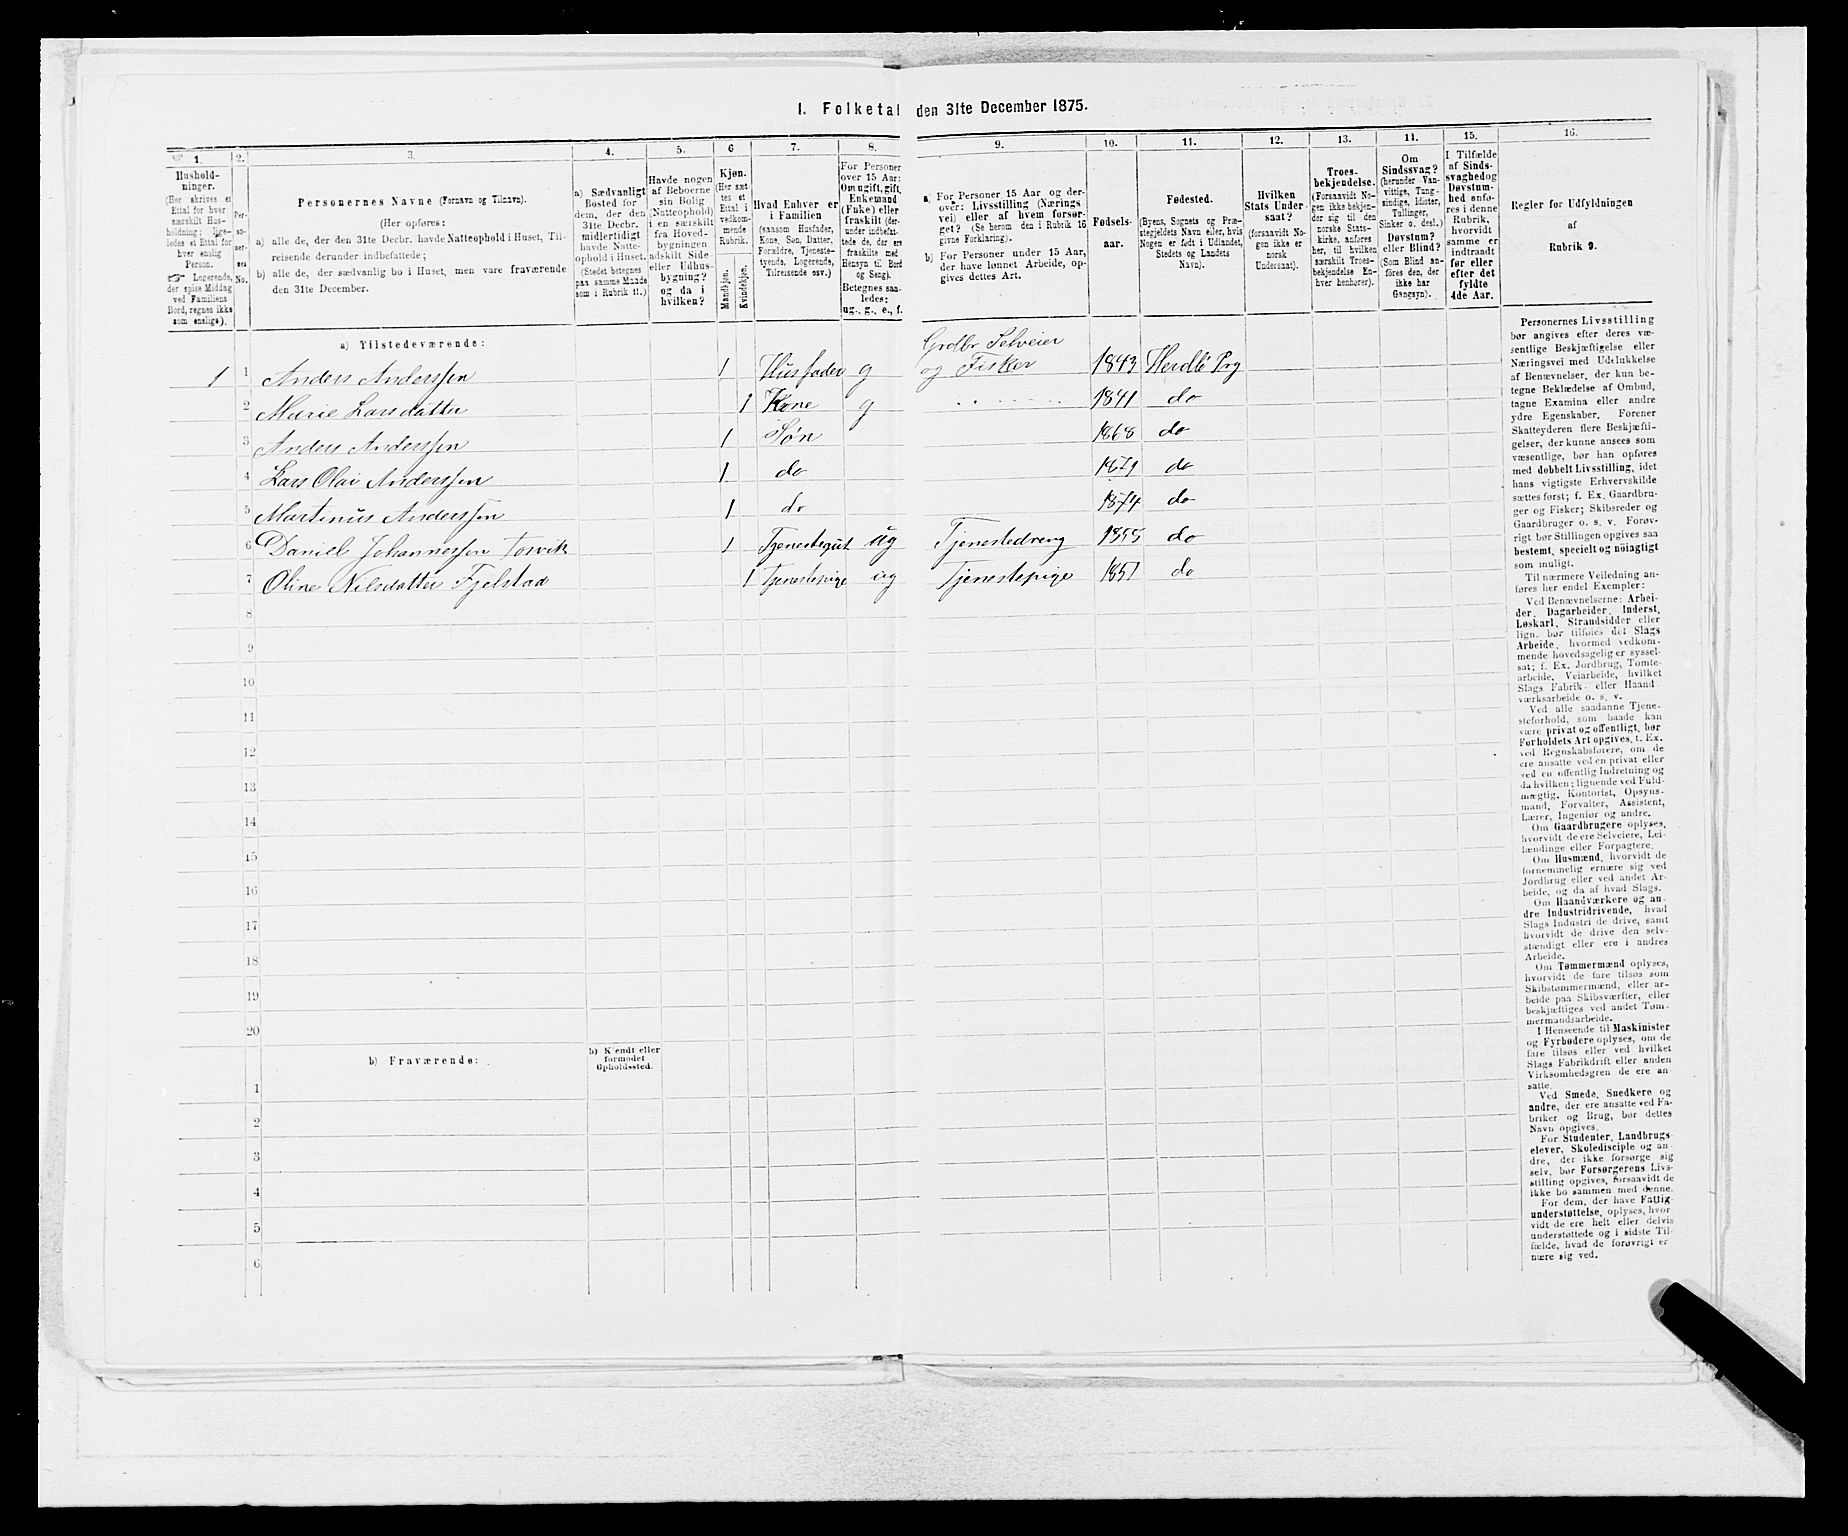 1. Folketal den 31te December 1875.
1.
2.
3.
4.
5.
6
7.
8.
9.
10.
11.
12.
13.
14.
15.
16.
Hushold-
ninger.
(Her skrives et
Ettal for hver
særskilt Hus-
holdning; lige-
ledes et Ettal for
hver enslig
Person.
☞ Logerende,
der spise Middag
ved Familiens
Bord, regnes ikke
som enslige).
Per-
so-
ner-
nes
No.
Personernes Navne (Fornavn og Tilnavn).
(Her opføres:
a) alle de, der den 31te Decbr. havde Natteophold i Huset, Til-
reisende derunder indbefattede;
b) alle de, der sædvanlig bo i Huset, men vare fraværende
den 31te December.
a) Sædvanligt
Bosted for
dem, der den
31te Decbr.
midlertidigt
havde Natte-
ophold i Huset.
(Stedet betegnes
paa samme Maade
som i Rubrik 11.)
Havde nogen
af Beboerne
sin Bolig
(Natteophold)
i en særskilt
fra Hoved-
bygningen
adskilt Side-
eller Udhus-
bygning?
og da i
hvilken?
Kjøn.
(Her sæt
tes et
Ettal i
vedkom-
mende
Rubrik.
Mandkjøn.
Kvindekjøn.
Hvad Enhver er
i Familien
(saasom Husfader,
Kone, Søn, Datter,
Forældre, Tjeneste-
tyende, Logerende,
Tilreisende osv.)
For Personer
over 15 Aar:
Om ugift, gift,
Enkemand
(Enke) eller
fraskilt (der-
under indbefat-
tede de, der ere
fraskilte med
Hensyn til Bord
og Seng).
Betegnes saa-
ledes:
ug., g., e., f.
a) For Personer 15 Aar og der-
over: Livsstilling (Nærings-
vei) eller af hvem forsør-
get? (Se herom den i Rubrik 16
givne Forklaring).
b) For Personer under 15 Aar,
der have lønnet Arbeide, op-
gives dettes Art.
Fødsels-
aar.
Fødested.
(Byens, Sognets og Præ-
stegjeldets Navn eller, hvis
Nogen er født i Udlandet,
Stedets og Landets
Navn).
Hvilken
Stats Under-
saat?
(forsaavidt No-
gen ikke er
norsk
Undersaat).
Troes-
bekjendelse.
(Forsaavidt No-
gen ikke bekjen-
der sig til den
norske Stats-
kirke, anføres
her, til hvilken
særskilt Troes-
bekjendelse En-
hver henhører).
Om
Sindssvag?
(herunder Van-
vittige, Tung-
sindige, Idioter,
Tullinger,
Sinker o. desl.).
Døvstum?
eller Blind?
(Som Blind an-
føres den, der
ikke har
Gangsyn).
I Tilfælde
af Sinds-
svaghed og
Døvstum-
hed anfø-
res i denne
Rubrik,
hvorvidt
samme er
indtraadt
før eller
efter det
fyldte
4de Aar.
Regler for Udfyldningen
af
Rubrik 9.
a) Tilstedeværende:
1 1 Anders Anderssen 1 Husfader g Grdbr Selveier og Fisker 1843 Herdle Prg
2 Marie Larsdatter 1 Kone g 1841 do
3 Anders Anderssen 1 Søn 1868 do
4 Lars Olai Anderssen 1 do 1871 do
5 Martinus Anderssen 1 do 1874 do
6 Daniel Johannessen Tosvik 1 Tjenestegut ug Tjenestedreng 1855 do
7 Oline Nilsdatter Fjelstad 1 Tjenestepige ug Tjenestepige 1851 do
8
9
10
11
12
13
14
15
16
17
18
19
20
b) Fraværende:
b) Kjendt eller
formodet
Opholdssted.
1
2
3
4
5
6
Personernes Livsstilling
bør angives efter deres væ-
sentlige Beskjæftigelse eller
Næringsvei med Udelukkelse
af Benævnelser, der kun be-
tegne Beklædelse af Ombud,
tagne Examina eller andre
ydre Egenskaber. Forener
Skatteyderen flere Beskjæfti-
gelser, der kunne ansees som
væsentlige, bør han opføres
med dobbelt Livsstilling, idet
hans vigtigste Erhvervskilde
sættes først; f. Ex. Gaardbru-
ger og Fisker; Skibsreder og
Gaardbruger o. s. v. Forøv-
rigt bør Stillingen opgives saa
bestemt, specielt og nøiagtigt
som muligt.
Til nærmere Veiledning an-
føres her endel Exempler:
Ved Benævnelserne: Arbei-
der, Dagarbeider, Inderst,
Løskarl, Strandsidder eller
lign. bør tilføies det Slags
Arbeide, hvormed vedkom-
mende hovedsagelig er syssel-
sat; f. Ex. Jordbrug, Tomte-
arbeide, Veiarbeide, hvilket
Slags Fabrik- eller Haand
værksarbeide o. s. v.
Ved alle saadanne Tjene-
steforhold, som baade kan
være privat og offentligt, bør
Forholdets Art opgives, t. Ex.
ved Regnskabsførere, om de
ere ansatte ved en privat eller
ved en offentlig Indretning og
da hvilken; lignende ved Fuld-
mægtig, Kontorist, Opsyns-
mand, Forvalter, Assistent,
Lærer, Ingeniør og andre.
Om Gaardbrugere oplyses,
hvorvidt de ere Selveiere, Lei-
lændinge eller Forpagtere.
Om Husmænd, hvorvidt de
fornemmelig ernære sig ved
Jordbrug eller ved andet Ar-
beide, og da af hvad Slags.
Om Haandværkere og an-
dre Industridrivende, hvad
Slags Industri de drive, samt
hvorvidt de drive den selv-
stændigt eller ere i andres
Arbeide.
Om Tømmermænd oplyses,
hvorvidt de fare tilsøs som
Skibstømmermænd, eller ar-
beide paa Skibsværfter, eller
beskjæftiges ved andet Tøm-
mermandsarbeide.
I Henseende til Maskinister
og Fyrbødere oplyses, om de
fare tilsøs eller ved hvilket
Slags Fabrikdrift eller anden
Virksomhedsgren de ere an-
satte.
Ved Smede, Snedkere og
andre, der ere ansatte ved Fa-
briker og Brug, bør dettes
Navn opgives.
For Studenter, Landbrugs-
elever, Skoledisciple og an-
dre, der ikke forsørge sig
selv, bør Forsørgerens Livs-
stilling opgives, forsaavidt de
ikke bo sammen med denne.
For dem, der have Fattig-
understøttelse, oplyses, hvor-
vidt de ere helt eller delvis
understøttede og i sidste Til-
fælde, hvad de forøvrigt er
nære sig ved.